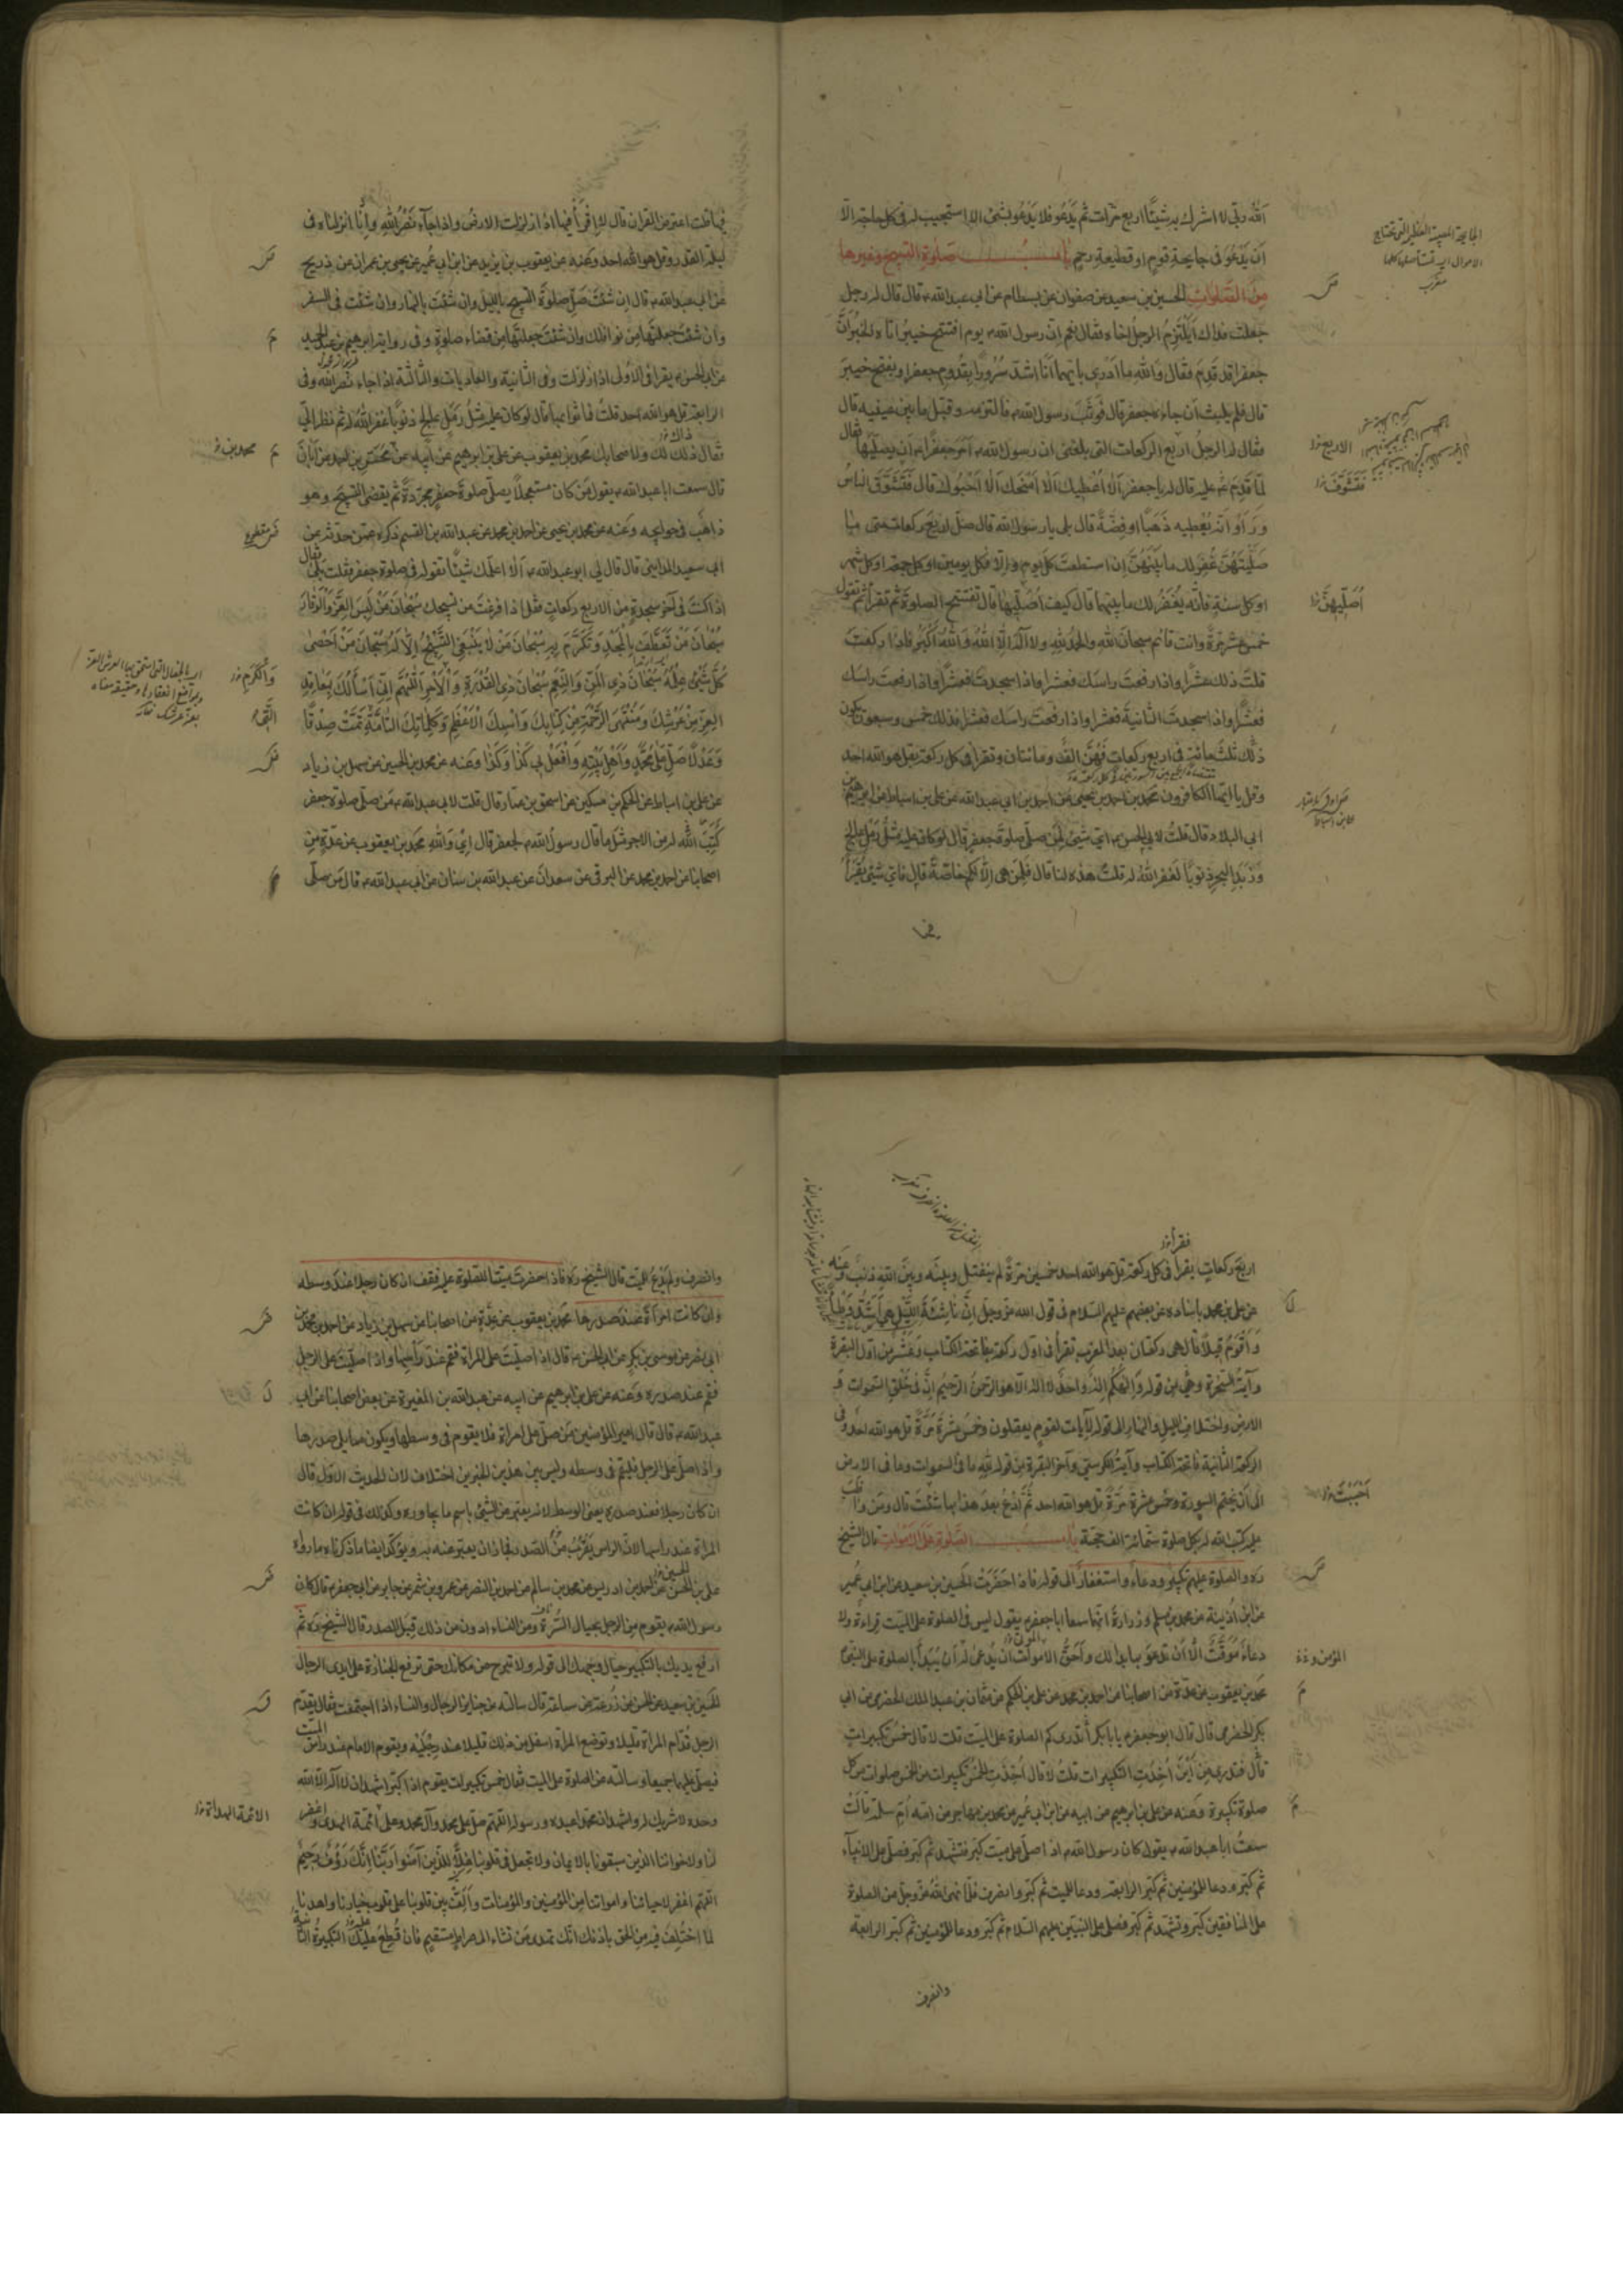 اللّه ربّي لا اشرك به شيئًا اربع مرّات ثم يَدْعو فلا يَدْعو بشئ الا استجيب له في كل حاجة الّا
اَن يَدْعُوَ في جايحة قومٍ او قطيعة رحمٍ باب صلوة التسبيح وغيرها
مِنَ الصَّلَوات الحسين بن سعيد عن صفوان عن بسطام عن ابي عبد اللّه ع قال قال له رجل
جعلت فداك اَيَلْتَزِمُ الرجلُ اخاه فقال نعم انّ رسول اللّه ص يوم افتتح خيبر اتاه الخبرُ اَنَّ
جعفرا قد قدم فقال واللّه ما اَدْري بايّهما اَنَا اشدّ سُرُورًا بقُدومِ جعفر او بفتح خيبرَ
قال فلم يلبث اَن جاء جعفر قال فوَثَبَ رسول اللّه ص فالتزمه وقبّل ما بين عينيه قال
فقال له الرجلُ اربع الركعات التي بلغني ان رسول اللّه ص اَمَرَ جعفرا ع اَن يصلّيَها فقال
لمّا قَدِمَ ع عليه قال له يا جعفر اَلَا اُعْطيك اَلَا اَمْنَحك اَلَا اَحْبُوك قال فَتَشَوَّقَ الناسُ
ورَأَوا انّه يُعْطيه ذَهَبًا او فِضّةً قال بلى يا رسول اللّه قال صلّ اربع ركعات متى ما
صَلَّيْتَهُنَّ غُفِرَ لك ما بَيْنَهُنَّ اِن استطعتَ كلّ يوم والّا فكل يومين او كل جمعة او كل شهر
او كل سنة فانّه يُغْفَرُ لك ما بينهما قال كيف اُصلّيها قال تفتتح الصلوة ثم تقرأ ثم تقول
خمس عشرة مرّة وانت قائم سبحان اللّه والحمد للّه ولا اله الّا اللّه واللّه اكبر فاذا ركعتَ
قلتَ ذلك عشرًا واذا رفعتَ راسَك فعشرا واذا سجدتَ فعشرًا واذا رفعتَ راسَك
فعشرًا واذا سجدتَ الثانيةَ فعشرا واذا رفعتَ راسَك فعشرا فذلك خمس وسبعون تكون
ذلك ثلثمائةٍ في اربع ركعات فهُنَّ الفٌ ومائتان وتقرأ في كل ركعة بقل هو اللّه احد
وقل يا ايّها الكافرون محمد بن احمد بن يحيى عن احمد بن ابي عبد اللّه عن علي بن اسباط عن ابرهيم بن
ابي البلاد قال قلتُ لابي الحسن ع ايّ شئ لمن صلّى صلوة جعفر قال لو كان عليه مثلُ رَمْلِ عالِجٍ
وزَبَدِ البحرِ ذنوبًا لغفر اللّه له قلتُ هذه لنا قال فلمن هي الّا لكم خاصّةً قال فايّ شئ يُقْرَأُ
فيها
الاربع
اُصَلِّيهِنَّ
فيها قلت اعترض القرآن قال لا اِقْرَأ فيها اذا زلزلت الارضُ واذا جآء نَصْرُ اللّه وانّا انزلناه في
ليلة القدر وقل هو اللّه احد وعنه عن يعقوب بن يزيد عن ابن ابي عُمَير عن يحيى بن عمران عن ذريح
عن ابي عبد اللّه ع قال اِن شئتَ صَلِّ صلوة التسبيح بالليل وان شئتَ بالنهار وان شئت في السفر
وان شئتَ جعلتَها مِن نوافلك وان شئتَ جعلتَها مِن قضاء صلوةٍ وفي رواية ابرهيم بن عبد الحميد
عن ابي الحسن ع يقرأ في الاُولى اذا زلزلت وفي الثانية والعاديات والثالثة اذا جاء نصر اللّه وفي
الرابعة قل هو اللّه احد قلتُ فما ثوابها قال لو كان عليه مثلُ رَمْلِ عالجٍ ذنوبًا غفر اللّه له ثم نظر اليَّ
فقال ذلك لك ولاصحابك محمد بن يعقوب عن علي بن ابرهيم عن ابيه عن مُحَسِّن بن احمد عن اَبَان
قال سمعت ابا عبد اللّه ع يقول مَن كان مستعجلًا يصلّي صلوة جعفرٍ مجرّدةً ثم يقضي التسبيحَ وهو
ذاهبٌ في حوايجه وعنه عن محمد بن يحيى عن احمد بن محمد عن عبد اللّه بن القسم ذكره عمّن حدّثه عن
ابي سعيد المدايني قال قال لي ابو عبد اللّه ع اَلَا اعلّمك شيئًا تقوله في صلوة جعفر فقلت بلى فقال
اذا كنتَ في آخر سجدةٍ من الاربع ركعاتٍ فقل اذا فرغتَ من تسبيحك سُبْحانَ مَنْ لَبِسَ العِزَّ والْوَقارَ
سُبْحانَ مَنْ تَعَطَّفَ بِالْمَجْدِ وَتَكَرَّمَ بِهِ سُبْحانَ مَنْ لا يَنْبَغي التَّسْبِيحُ اِلّا لَهُ سُبْحانَ مَنْ اَحْصى
كُلَّ شَيْءٍ عِلْمُهُ سُبْحَانَ ذِي الْمَنِّ وَالنِّعَمِ سُبْحانَ ذِي القُدْرَةِ وَالْاَمْرِ اَللّٰهُمَّ اِنّي اَسْأَلُكَ بِمَعاقِدِ
العِزِّ مِنْ عَرْشِكَ وَمُنْتَهَى الرَّحْمَةِ مِنْ كِتابِكَ وَاسْمِكَ الْاَعْظَمِ وَكَلِماتِكَ التامَّةِ الَّتي تَمَّتْ صِدْقًا
وَعَدْلًا صَلِّ عَلى مُحَمَّدٍ وَاَهْلِ بَيْتِهِ وَافْعَلْ بي كَذا وَكَذا وعنه عن محمد بن الحسن عن سهل بن زياد
عن علي بن اسباط عن الحكم بن مسكين عن اسحق بن عمّار قال قلت لابي عبد اللّه ع مَن صلّى صلوة جعفر
كَتَبَ اللّه له من الاجر مثل ما قال رسول اللّه ص لجعفر قال اِي وَاللّهِ محمد بن يعقوب عن عدّةٍ مِن
اصحابنا عن احمد بن محمد عن البرقي عن سعدان عن عبد اللّه بن سنان عن ابي عبد اللّه ع قال مَن صلّى
محمد بن
وَالْكَرَمِ
اربعَ ركعاتٍ يقرأ في كل ركعة قل هو اللّه احد خمسين مرّةً لم ينفتل وبينه وبينَ اللّهِ ذنب وعنه
عن علي بن محمد باسناده عن بعضهم عليهم السلام في قول اللّه عز وجل اِنَّ ناشِئَةَ اللَّيْلِ هِيَ اَشَدُّ وَطْأً
وَاَقْوَمُ قيلًا قال هي ركعتان بعد المغرب تقرأ في اوّل ركعة بفاتحة الكتاب وعَشْرٍ من اوّل البقرة
وآيةِ السخرة وهي من قوله وَاِلٰهُكُمْ اِلٰهٌ واحدٌ لا اله الّا هو الرحمنُ الرحيم اِنَّ في خَلْقِ السّموات و
الارض واختلاف الليل والنهار الى قوله لآيات لقومٍ يعقلون وخمسَ عشرةَ مرّةً قل هو اللّه احد وفي
الركعة الثانية فاتحة الكتاب وآيةَ الكرسي وآخر البقرة من قوله للّه ما في السموات وما في الارض
الى اَن يختم السورة وخمس عشرة مرّةً قل هو اللّه احد ثمّ اُدْعُ بعدَ هذا بما شئتَ قال ومَن واظب
عليه كتب اللّه له بكل صلوة ستّمائة الف حجّة باب الصَّلوة عَلَى الاَمْوات قال الشيخ
ره والصلوة عليهم تكبير ودعاء واستغفار الى قوله فاذا حَضَرَت الحسين بن سعيد عن ابن ابي عُمير
عن ابن اُذينة عن محمد بن مسلم وزرارة انهما سمعا ابا جعفر ع يقول ليس في الصلوة على الميت قراءة ولا
دعاء مُوَقّت اِلّا اَن تدعوَ بما بدا لك واَحَقُّ الاموات اَن يُدعى لَهُ اَن يُبْدَأَ بالصلوة على النبي ص
محمد بن يعقوب عن عدّة من اصحابنا عن احمد بن محمد عن علي بن الحكم عن عثمان بن عبد الملك الحضرمي عن ابي
بكر الحضرمي قال قال ابو جعفر ع يا با بكر أتدري كم الصلوة على الميت قلت لا قال خمسُ تكبيراتٍ
قال فتدري مِن اَيْنَ اُخِذَتِ التكبيرات قلتُ لا قال اُخِذَتِ الخمسُ تكبيرات من الخمس صلوات من كل
صلوةٍ تكبيرة وعنه عن علي بن ابرهيم عن ابيه عن ابن ابي عُمير عن محمد بن مهاجر عن امّه اُمّ سلمة قالَتْ
سمعتُ ابا عبد اللّه ع يقول كان رسول اللّه ص اذا صلّى على ميت كبّر فتشهّد ثم كبّر فصلّى على الانبيآء
ثم كبّر ودعا للمؤمنين ثم كبّر الرابعة ودعا للميت ثم كبّر وانصرف فلمّا نهاه اللّه عز وجل عن الصلوة
على المنافقين كبّر وتشهّد ثم كبّر فصلى على النبيّين عليهم السّلام ثم كبّر ودعا للمؤمنين ثم كبّر الرابعة
وانصرف
وانصرف ولم يَدْعُ للميّت قال الشيخ ره فاذا حضرتَ ميتا للصلوة عليه فقف ان كان رجلا عند وسطه
وان كانت امرأةً عند صدرها محمد بن يعقوب عن عدّةٍ من اصحابنا عن سهل بن زياد عن احمد بن محمد بن
ابي نصر عن موسى بن بكر عن ابي الحسن ع قال اذا صلّيتَ على المرأة فقُم عندَ رأسِها واذا صلّيتَ على الرجل
فقم عند صدره وعنه عن علي بن ابرهيم عن ابيه عن عبد اللّه بن المغيرة عن بعض اصحابنا عن ابي
عبد اللّه ع قال قال امير المؤمنين ع مَن صلّى على امراة فلا يقوم في وسطها ويكون مما يلي صدرها
واذا صلّى على الرجل فليقم في وسطه وليس بين هذين الخبرين اختلاف لان الحديث الاوّل قال
ان كان رجلا فعند صدره يعني الوسط لانه يعبّر عن الشئ باسم ما يجاوره وكذلك في قوله ان كانت
المراة عند راسها لانّ الراس يَقْرُبُ مِنَ الصدر فجاز ان يعبّر عنه به ويؤكّد ايضا ما ذكرناه ما رواه
علي بن الحسن عن احمد بن ادريس عن محمد بن سالم عن احمد بن النضر عن عمرو بن شمر عن جابر عن ابي جعفر ع قال كان
رسول اللّه ص يقوم مِن الرجل بحيال السُّرة ومن النساء ادون من ذلك قِبَلَ الصدر قال الشيخ ره ثم
ارفع يديك بالتكبير حيال وجهك الى قوله ولا تبرح من مكانك حتى ترفع الجنازة على ايدي الرجال
الحسين بن سعيد عن الحسن عن زُرعة عن سماعة قال سالته عن جنايز الرجال والنساء اذا اجتمعت فقال يقدّم
الرجل قدّام المراة قليلا وتوضع المراة اسفل من ذلك قليلا عند رِجْلَيْه ويقوم الامام عند راس الميت
فيصلّي عليهما جميعا وسالته عن الصلوة على الميت فقال خمس تكبيرات يقوم اذا كبّر اشهد ان لا اله الّا اللّه
وحده لا شريك له واشهد ان محمدا عبده ورسوله اللّهم صلّ على محمد وآل محمد وعلى ائمّة الهدى واغفر
لنا ولاخواننا الذين سبقونا بالايمان ولا تجعل في قلوبنا غِلًّا للذين آمنوا رَبَّنا اِنَّكَ رَؤُفٌ رَحِيمٌ
اللهم اغفر لاحيائنا وامواتنا من المؤمنين والمؤمنات واَلِّفْ بين قلوبنا على قلوب خيارنا واهدنا
لما اختُلِفَ فيه مِن الحق باذنك انّك تهدي مَن تشاء الى صراطٍ مستقيم فان قُطِعَ عليك التكبيرةُ الثانية
الائمة الهداة